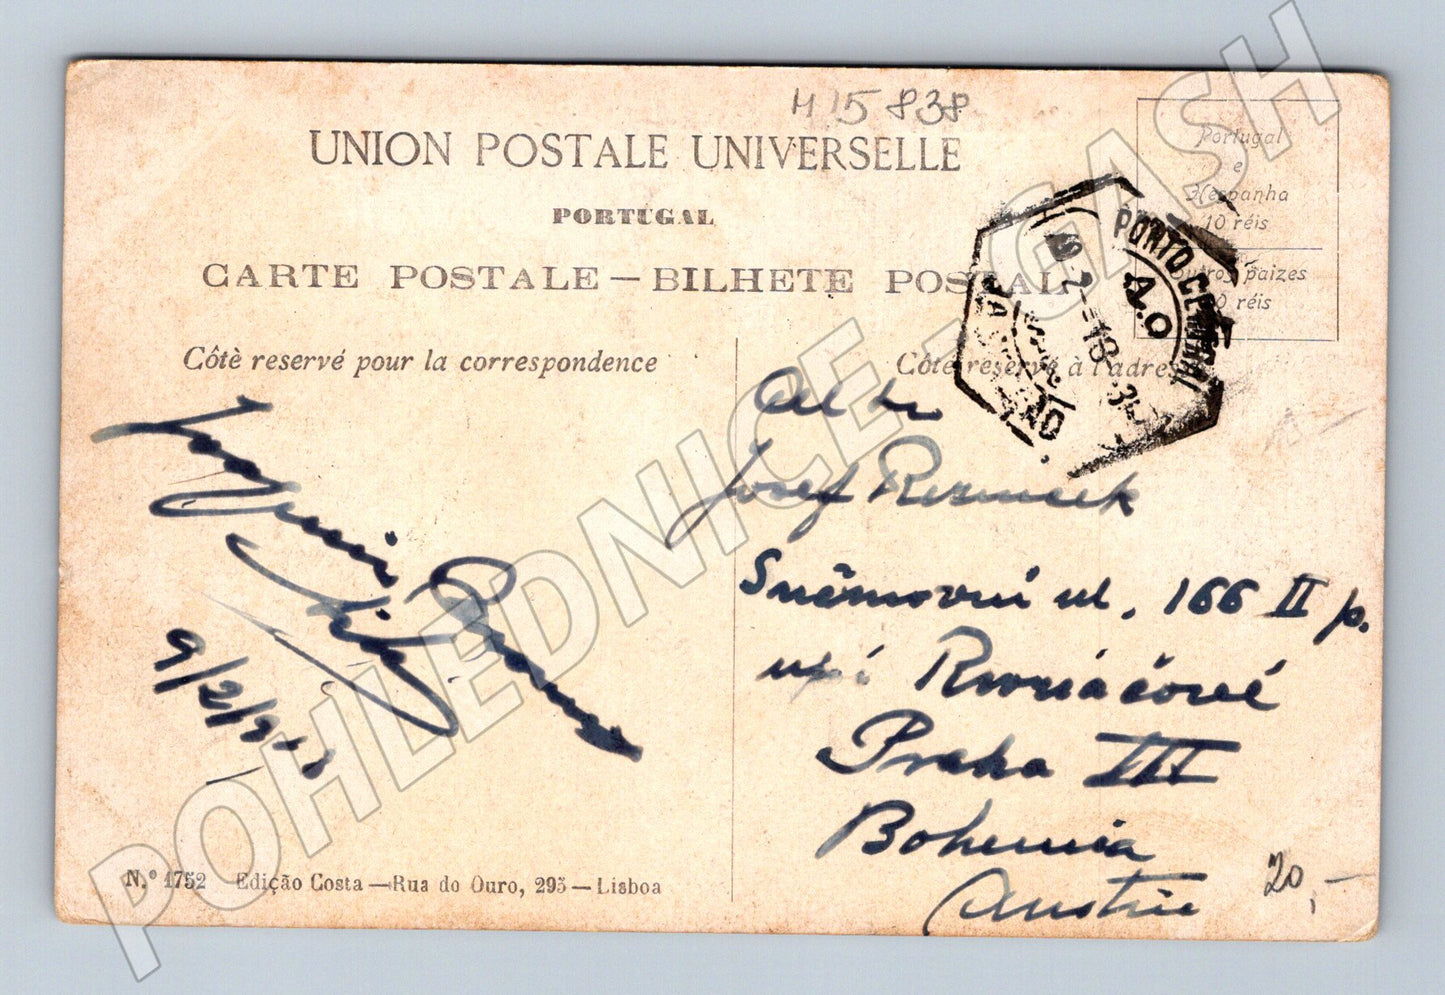 H15838
UNION POSTALE UNIVERSELLE
PORTUGAL
CARTE POSTALE — BILHETE POSTAL
Portugal
e
Hespanha
10 réis
Outros paizes
0 réis
PORTO CENTRAL
A.O
Côtè reservé pour la correspondence
Côté reservé à l'adre
Josef
Sněmovní ul. 166 II p.
Praha III
Bohemia
Austria
Joaquim
9/2/913
20,-
N.º 1752 Edição Costa — Rua do Ouro, 295 — Lisboa
POHLEDNICE - GASH